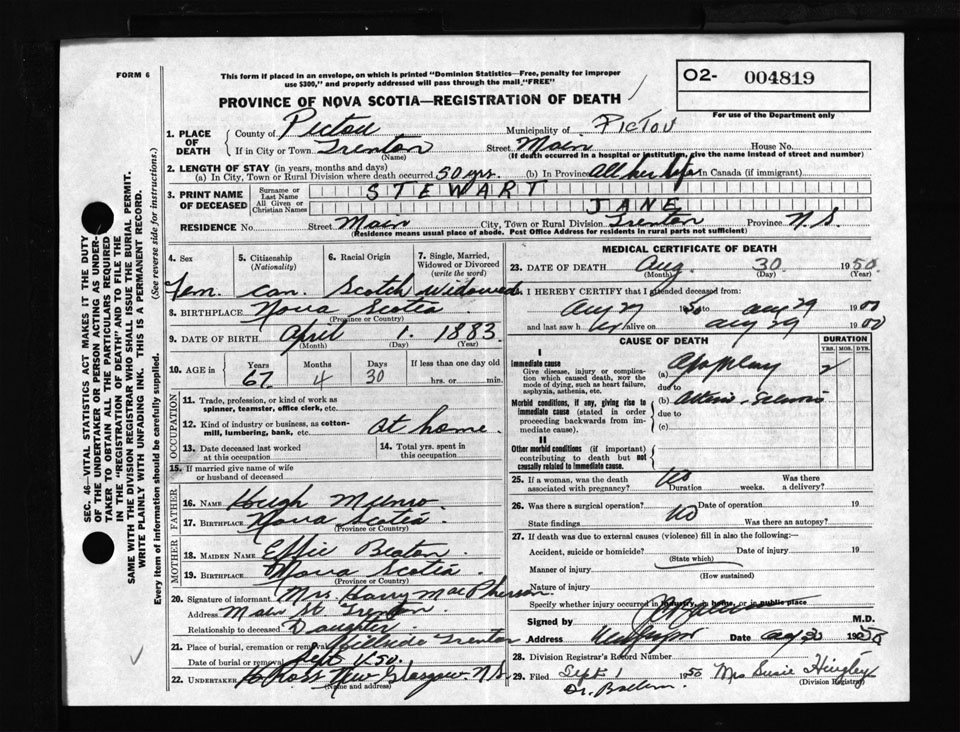 FORM 6
This form if placed in an envelope, on which is printed "Dominion Statistics—Free, penalty for improper
use $300," and properly addressed will pass through the mail "FREE"
O2- 004819
For use of the Department only
PROVINCE OF NOVA SCOTIA—REGISTRATION OF DEATH
1. PLACE OF DEATH
County of Pictou Municipality of PICTOU
If in City or Town Trenton Street Main House No.
(Name) (If death occurred in a hospital or institution, give the name instead of street and number)
2. LENGTH OF STAY (in years, months and days)
(a) In City, Town or Rural Division where death occurred 50 yrs. (b) In Province All her life In Canada (if immigrant)
3. PRINT NAME OF DECEASED
Surname or Last Name STEWART
All Given or Christian Names JANE
RESIDENCE No. Street Main City, Town or Rural Division Trenton Province N.S.
(Residence means usual place of abode. Post Office Address for residents in rural parts not sufficient)
4. Sex 5. Citizenship (Nationality) 6. Racial Origin 7. Single, Married, Widowed or Divorced (write the word)
Fem. Can. Scotch Widowed
8. BIRTHPLACE Nova Scotia
(Province or Country)
9. DATE OF BIRTH April 1 1883
(Month) (Day) (Year)
10. AGE in Years Months Days If less than one day old
67 4 30 hrs. or min.
OCCUPATION
11. Trade, profession, or kind of work as spinner, teamster, office clerk, etc.
12. Kind of industry or business, as cotton-mill, lumbering, bank, etc. At home.
13. Date deceased last worked at this occupation
14. Total yrs. spent in this occupation
15. If married give name of wife or husband of deceased
FATHER
16. NAME Hough Munro
17. BIRTHPLACE Nova Scotia
(Province or Country)
MOTHER
18. MAIDEN NAME Effie Beaton
19. BIRTHPLACE Nova Scotia
(Province or Country)
20. Signature of informant Mrs. Harry MacPherson
Address Main St Trenton
Relationship to deceased Daughter
21. Place of burial, cremation or removal Hillside Trenton
Date of burial or removal Sept 1.50.
22. UNDERTAKER Ross New Glasgow N.S.
(Name and address)
MEDICAL CERTIFICATE OF DEATH
23. DATE OF DEATH Aug 30 1950
(Month) (Day) (Year)
I HEREBY CERTIFY that I attended deceased from:
Aug 27 1950 to Aug 29 19
and last saw her alive on Aug 29 19
CAUSE OF DEATH DURATION
YRS. MOS. DYS.
I
Immediate cause
Give disease, injury or complication which caused death, not the mode of dying, such as heart failure, asphyxia, asthenia, etc.
(a) Apoplexy 2
due to
Morbid conditions, if any, giving rise to immediate cause (stated in order proceeding backwards from immediate cause).
(b)
due to
(c)
II
Other morbid conditions (if important) contributing to death but not causally related to immediate cause.
25. If a woman, was the death associated with pregnancy? No Duration weeks. Was there a delivery?
26. Was there a surgical operation? No Date of operation 19
State findings Was there an autopsy?
27. If death was due to external causes (violence) fill in also the following:—
Accident, suicide or homicide? Date of injury 19
(State which)
Manner of injury
(How sustained)
Nature of injury
Specify whether injury occurred in industry, in home, or in public place
Signed by M.D.
Address Date
28. Division Registrar's Record Number
29. Filed Sept 1 1950 Mrs Susie Hingley
(Division Registrar)
Dr.
SEC. 46—VITAL STATISTICS ACT MAKES IT THE DUTY
OF THE UNDERTAKER OR PERSON ACTING AS UNDERTAKER
TO OBTAIN ALL THE PARTICULARS REQUIRED
IN THE "REGISTRATION OF DEATH" AND TO FILE THE
SAME WITH THE DIVISION REGISTRAR WHO SHALL ISSUE THE BURIAL PERMIT.
WRITE PLAINLY WITH UNFADING INK. THIS IS A PERMANENT RECORD.
Every item of information should be carefully supplied. (See reverse side for instructions.)